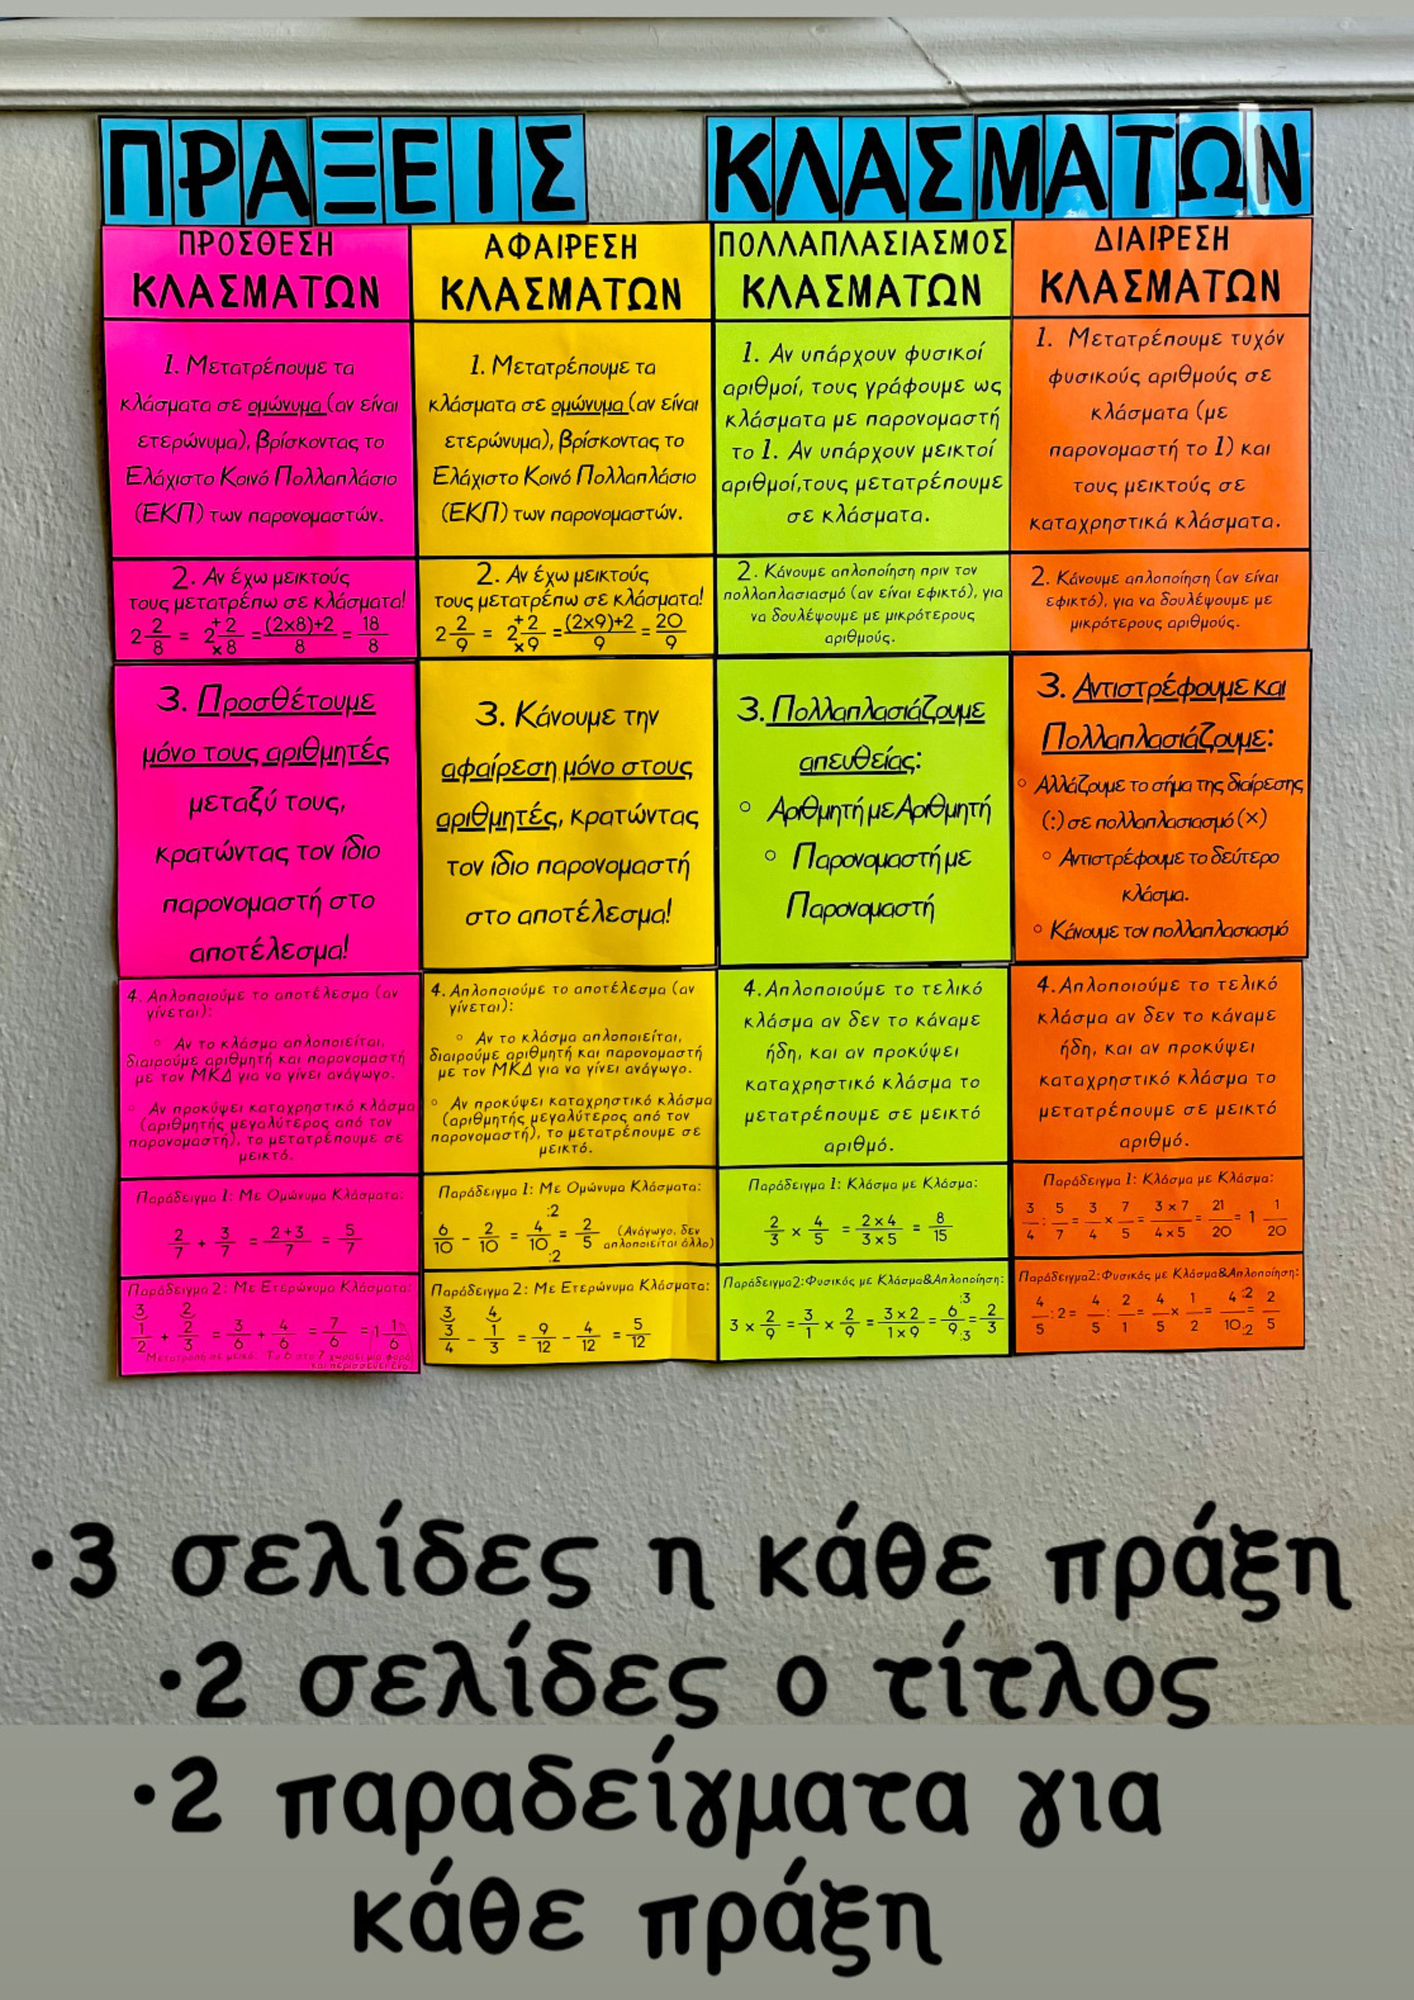 ΠΡΑΞΕΙΣ ΚΛΑΣΜΑΤΩΝ
ΠΡΟΣΘΕΣΗ
ΚΛΑΣΜΑΤΩΝ
1. Μετατρέπουμε τα
κλάσματα σε ομώνυμα (αν είναι
ετερώνυμα), βρίσκοντας το
Ελάχιστο Κοινό Πολλαπλάσιο
(ΕΚΠ) των παρονομαστών.
2. Αν έχω μεικτούς
τους μετατρέπω σε κλάσματα!
2 2/8 = 2 +2/×8 = (2x8)+2/8 = 18/8
3. Προσθέτουμε
μόνο τους αριθμητές
μεταξύ τους,
κρατώντας τον ίδιο
παρονομαστή στο
αποτέλεσμα!
4. Απλοποιούμε το αποτέλεσμα (αν
γίνεται):
◦ Αν το κλάσμα απλοποιείται,
διαιρούμε αριθμητή και παρονομαστή
με τον ΜΚΔ για να γίνει ανάγωγο.
◦ Αν προκύψει καταχρηστικό κλάσμα
(αριθμητής μεγαλύτερος από τον
παρονομαστή), το μετατρέπουμε σε
μεικτό.
Παράδειγμα 1: Με Ομώνυμα Κλάσματα:
2/7 + 3/7 = 2+3/7 = 5/7
Παράδειγμα 2: Με Ετερώνυμα Κλάσματα:
3 2
1/2 + 2/3 = 3/6 + 4/6 = 7/6 = 1 1/6
Μετατροπή σε μεικτό: Το 6 στο 7 χωράει μια φορά
και περισσεύει ένα.
ΑΦΑΙΡΕΣΗ
ΚΛΑΣΜΑΤΩΝ
1. Μετατρέπουμε τα
κλάσματα σε ομώνυμα (αν είναι
ετερώνυμα), βρίσκοντας το
Ελάχιστο Κοινό Πολλαπλάσιο
(ΕΚΠ) των παρονομαστών.
2. Αν έχω μεικτούς
τους μετατρέπω σε κλάσματα!
2 2/9 = 2 +2/×9 = (2x9)+2/9 = 20/9
3. Κάνουμε την
αφαίρεση μόνο στους
αριθμητές, κρατώντας
τον ίδιο παρονομαστή
στο αποτέλεσμα!
4. Απλοποιούμε το αποτέλεσμα (αν
γίνεται):
◦ Αν το κλάσμα απλοποιείται,
διαιρούμε αριθμητή και παρονομαστή
με τον ΜΚΔ για να γίνει ανάγωγο.
◦ Αν προκύψει καταχρηστικό κλάσμα
(αριθμητής μεγαλύτερος από τον
παρονομαστή), το μετατρέπουμε σε
μεικτό.
Παράδειγμα 1: Με Ομώνυμα Κλάσματα:
:2
6/10 - 2/10 = 4/10 = 2/5 (Ανάγωγο, δεν
απλοποιείται άλλο)
:2
Παράδειγμα 2: Με Ετερώνυμα Κλάσματα:
3 4
3/4 - 1/3 = 9/12 - 4/12 = 5/12
ΠΟΛΛΑΠΛΑΣΙΑΣΜΟΣ
ΚΛΑΣΜΑΤΩΝ
1. Αν υπάρχουν φυσικοί
αριθμοί, τους γράφουμε ως
κλάσματα με παρονομαστή
το 1. Αν υπάρχουν μεικτοί
αριθμοί,τους μετατρέπουμε
σε κλάσματα.
2. Κάνουμε απλοποίηση πριν τον
πολλαπλασιασμό (αν είναι εφικτό), για
να δουλέψουμε με μικρότερους
αριθμούς.
3. Πολλαπλασιάζουμε
απευθείας:
◦ Αριθμητή με Αριθμητή
◦ Παρονομαστή με
Παρονομαστή
4. Απλοποιούμε το τελικό
κλάσμα αν δεν το κάναμε
ήδη, και αν προκύψει
καταχρηστικό κλάσμα το
μετατρέπουμε σε μεικτό
αριθμό.
Παράδειγμα 1: Κλάσμα με Κλάσμα:
2/3 × 4/5 = 2×4/3×5 = 8/15
Παράδειγμα2:Φυσικός με Κλάσμα&Απλοποίηση:
3 × 2/9 = 3/1 × 2/9 = 3×2/1×9 = 6:3/9:3 = 2/3
ΔΙΑΙΡΕΣΗ
ΚΛΑΣΜΑΤΩΝ
1. Μετατρέπουμε τυχόν
φυσικούς αριθμούς σε
κλάσματα (με
παρονομαστή το 1) και
τους μεικτούς σε
καταχρηστικά κλάσματα.
2. Κάνουμε απλοποίηση (αν είναι
εφικτό), για να δουλέψουμε με
μικρότερους αριθμούς.
3. Αντιστρέφουμε και
Πολλαπλασιάζουμε:
◦ Αλλάζουμε το σήμα της διαίρεσης
(:) σε πολλαπλασιασμό (×)
◦ Αντιστρέφουμε το δεύτερο
κλάσμα.
◦ Κάνουμε τον πολλαπλασιασμό
4. Απλοποιούμε το τελικό
κλάσμα αν δεν το κάναμε
ήδη, και αν προκύψει
καταχρηστικό κλάσμα το
μετατρέπουμε σε μεικτό
αριθμό.
Παράδειγμα 1: Κλάσμα με Κλάσμα:
3/4 : 5/7 = 3/4 × 7/5 = 3×7/4×5 = 21/20 = 1 1/20
Παράδειγμα2:Φυσικός με Κλάσμα&Απλοποίηση:
4/5 : 2 = 4/5 : 2/1 = 4/5 × 1/2 = 4:2/10:2 = 2/5
•3 σελίδες η κάθε πράξη
•2 σελίδες ο τίτλος
•2 παραδείγματα για
κάθε πράξη